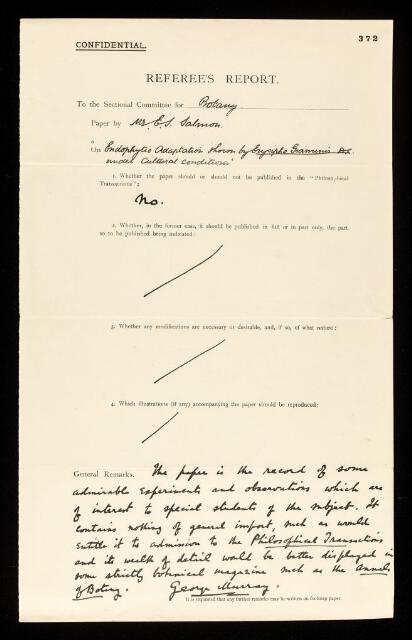 372
CONFIDENTIAL.
REFEREE'S REPORT.
To the Sectional Committee for Botany.
Paper by Mr. E. S. Salmon.
On "Endophytic Adaptation shown by Erysiphe Graminis DC.
under Cultural Conditions"
1. Whether the paper should or should not be published in the "Philosophical
Transactions":
No.
2. Whether, in the former case, it should be published in full or in part only, the part
so to be published being indicated:
3. Whether any modifications are necessary or desirable, and, if so, of what nature:
4. Which illustrations (if any) accompanying the paper should be reproduced:
General Remarks. The paper is the record of some
admirable experiments and observations which are
of interest to special students of the subject. It
contains nothing of general import, such as would
entitle it to admission to the Philosophical Transactions
and its wealth of detail would be better displayed in
some strictly botanical magazine such as the Annals
of Botany. George Murray.
It is requested that any further remarks may be written on foolscap paper.